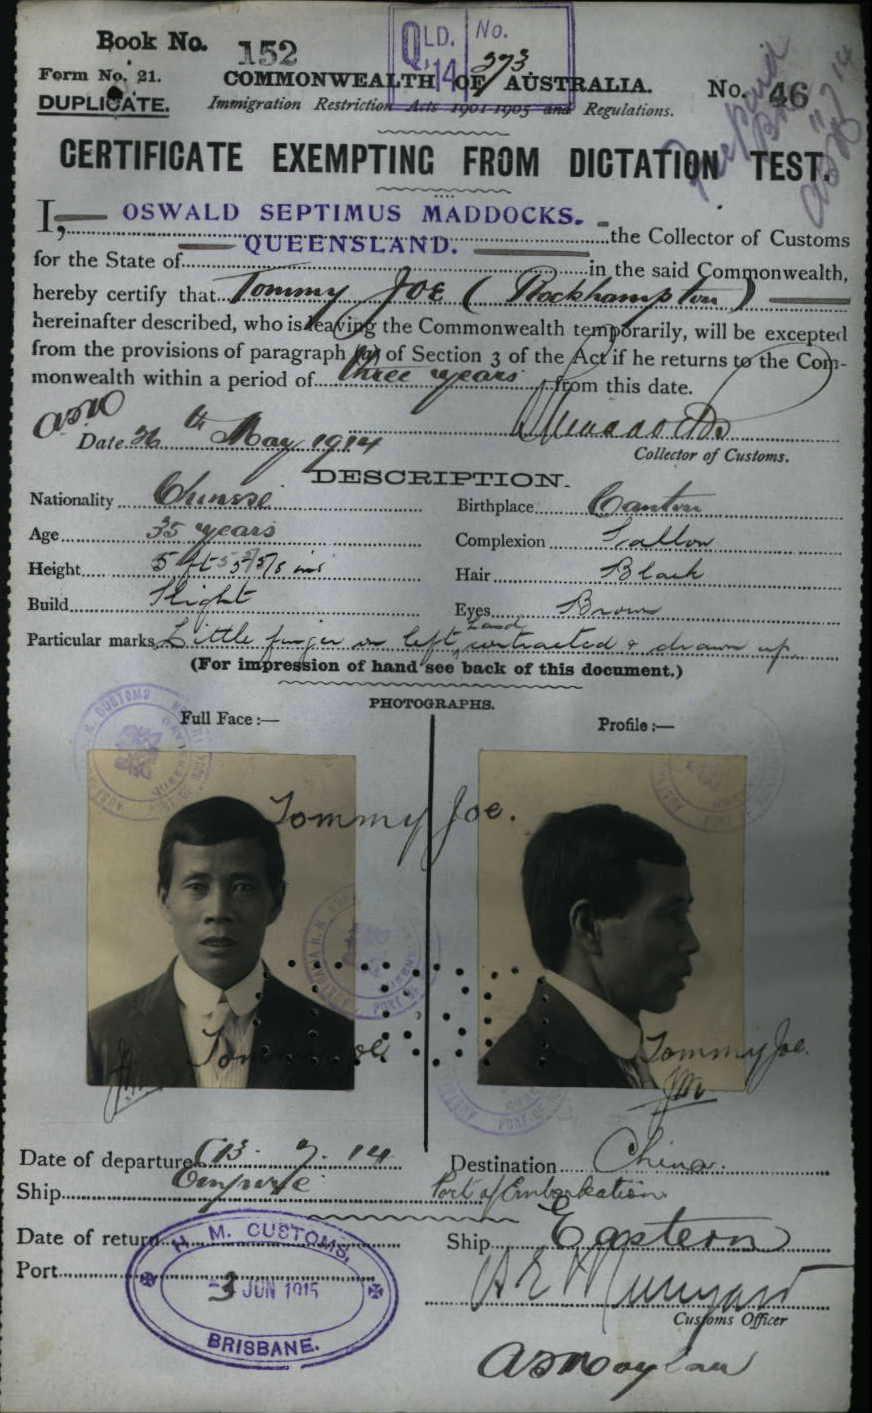 Book No. 152
QLD. No.
'14 373
Form No. 21.
COMMONWEALTH OF AUSTRALIA.
No. 46
DUPLICATE.
Immigration Restriction Acts 1901-1905 and Regulations.
CERTIFICATE EXEMPTING FROM DICTATION TEST.
I, OSWALD SEPTIMUS MADDOCKS. the Collector of Customs
for the State of QUEENSLAND. in the said Commonwealth,
hereby certify that Tommy Joe (Rockhampton)
hereinafter described, who is leaving the Commonwealth temporarily, will be excepted
from the provisions of paragraph (a) of Section 3 of the Act if he returns to the Com-
monwealth within a period of three years from this date.
Date 26th May 1914
Collector of Customs.
DESCRIPTION.
Nationality Chinese Birthplace Canton
Age 35 years Complexion Sallow
Height 5 ft 5 5/8 ins Hair Black
Build Slight Eyes Brown
Particular marks Little finger on left hand contracted & drawn up
(For impression of hand see back of this document.)
PHOTOGRAPHS.
Full Face :— Profile :—
Tommy Joe.
Tommy Joe
Tommy Joe.
Date of departure 13. 7. 14 Destination China.
Ship Empire Port of Embarkation
Date of return Ship Eastern
Port
H. M. CUSTOMS,
3 JUN 1915
BRISBANE.
Customs Officer